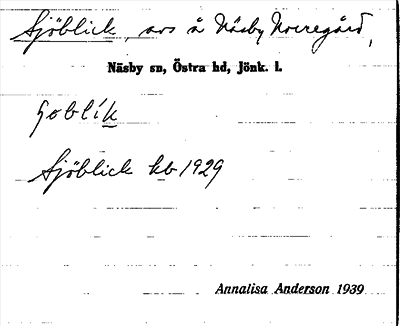 Sjöblick, avs å Näsby Norregård,
Näsby sn, Östra hd, Jönk. l.
ʃoblík
Sjöblick kb 1929
Annalisa Anderson 1939